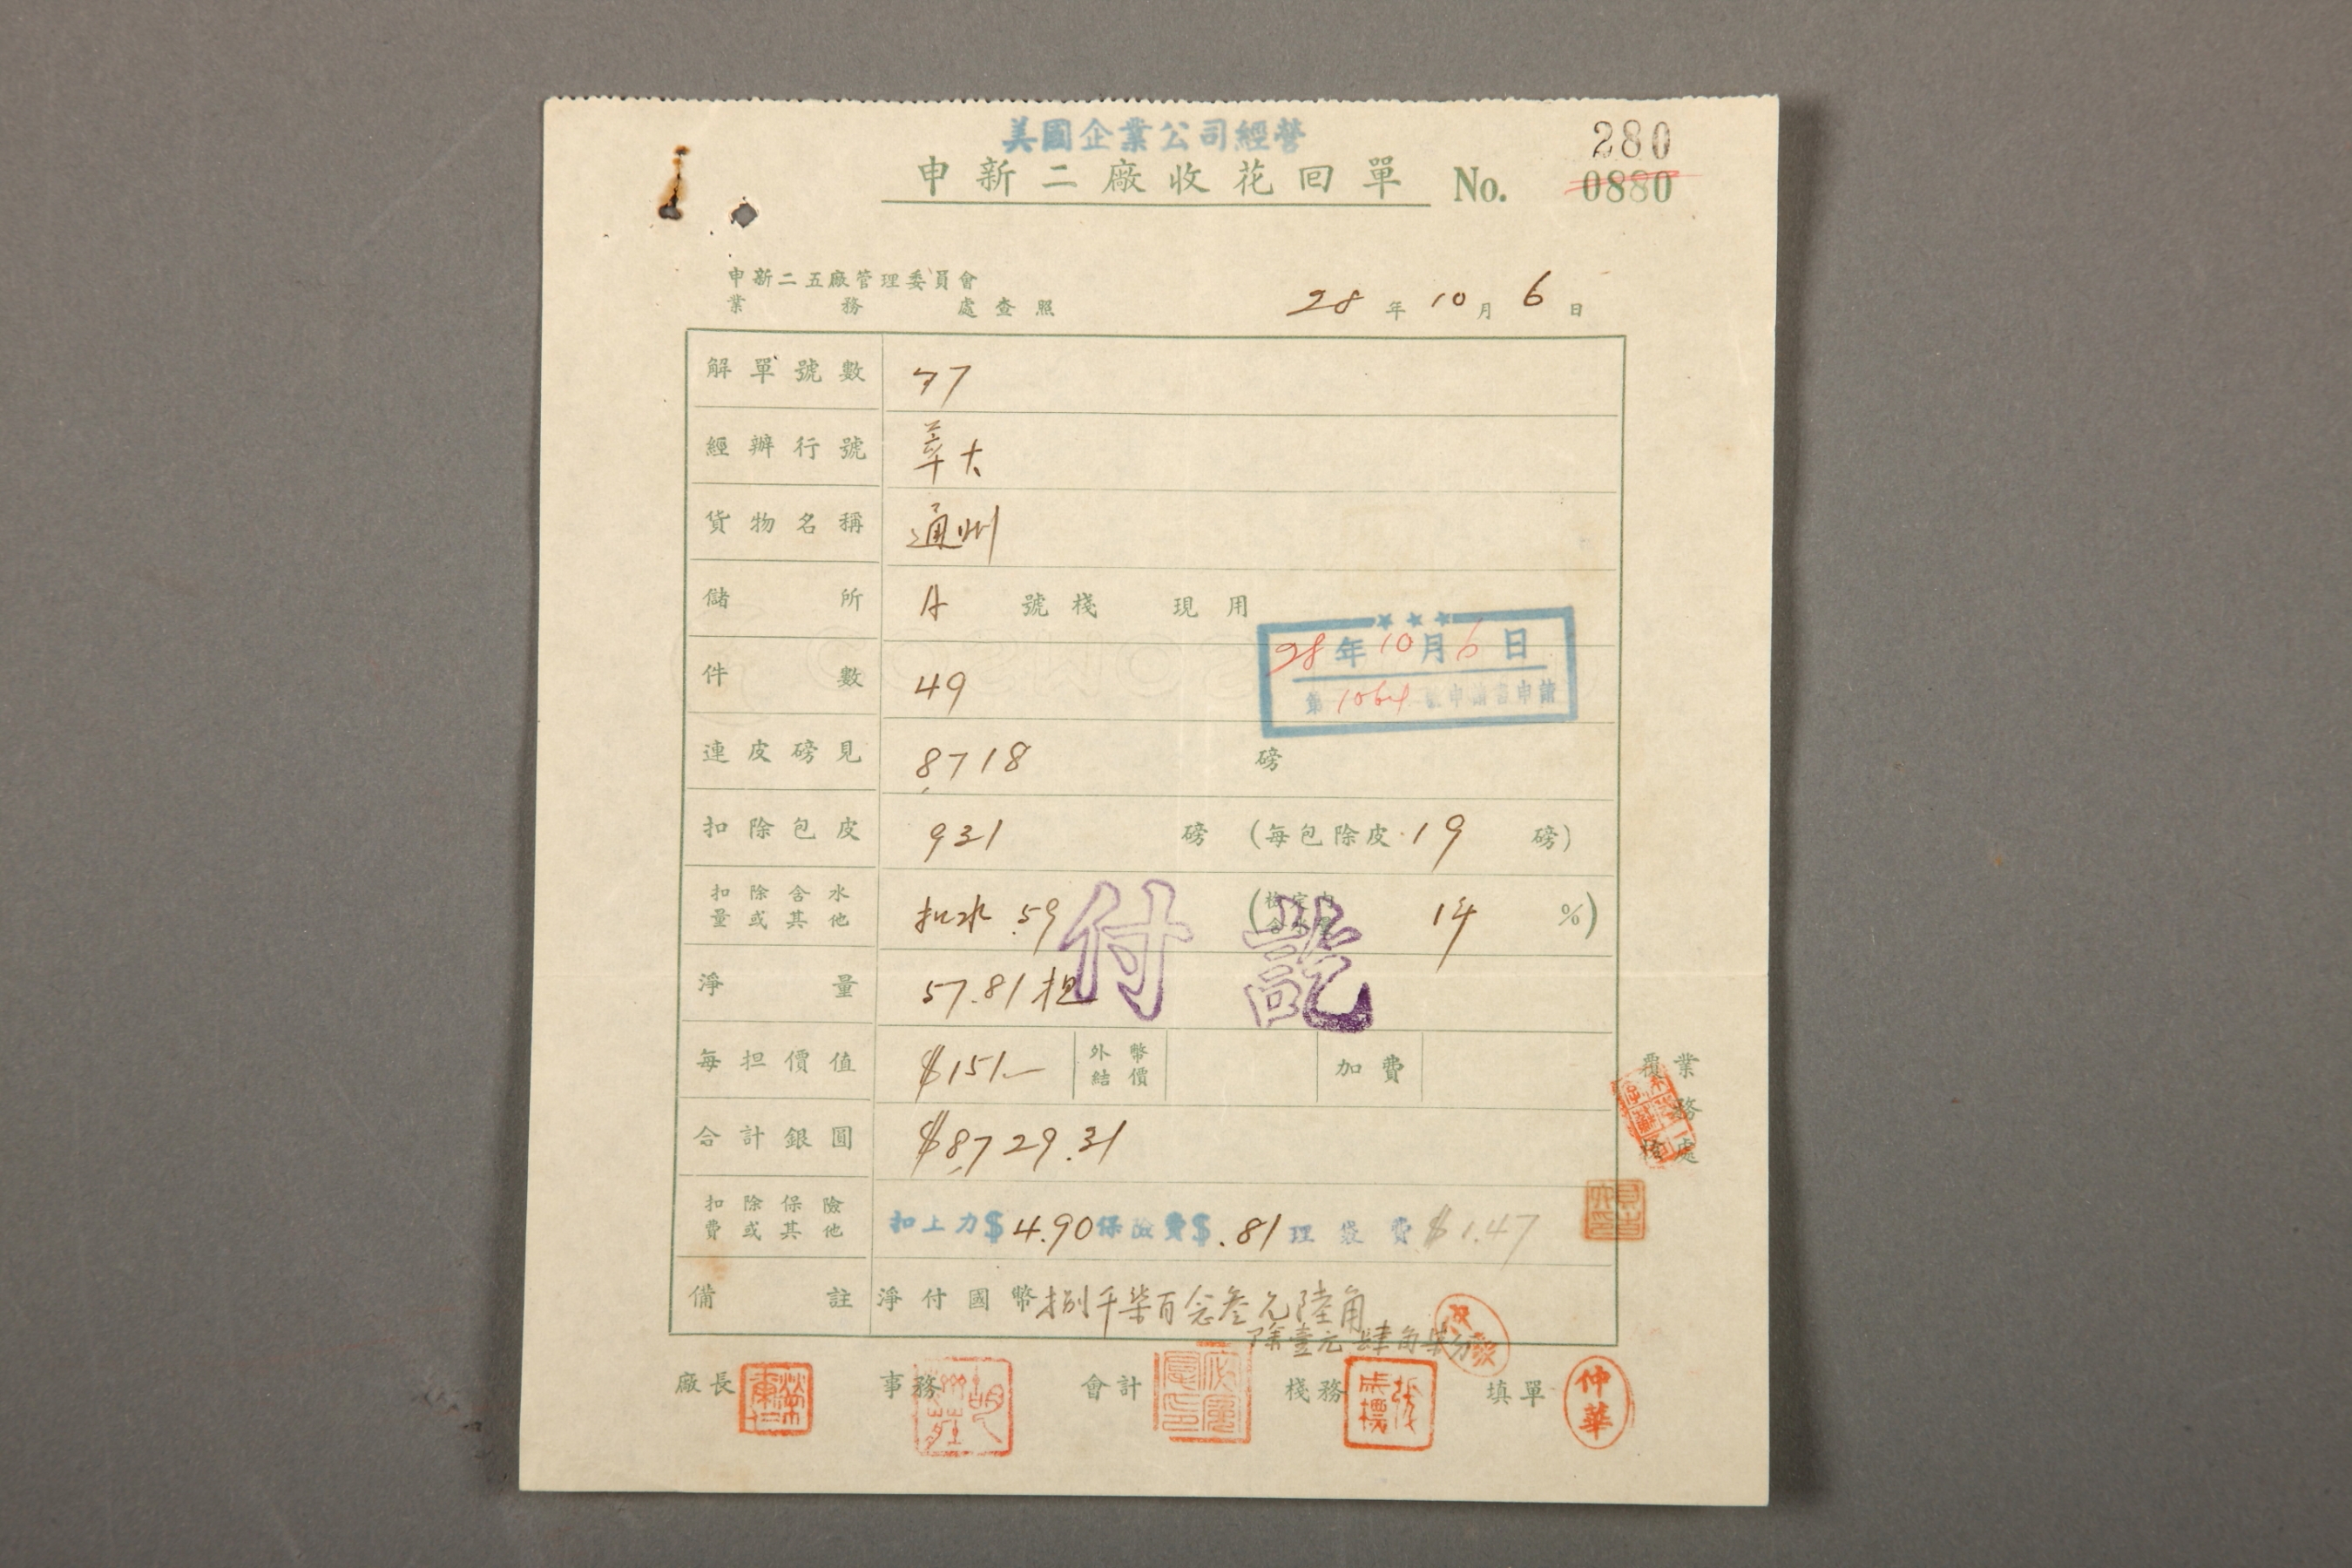 美國企業公司經營
280
申新二廠收花回單 No. 0880
申新二五廠管理委員會
業務處查照
28年10月6日
解單號數 77
經辦行號 莘大
貨物名稱 通州
儲所 A 號棧 現用
28年10月6日
第1064號申請書申請
件數 49
連皮磅見 8718 磅
扣除包皮 931 磅 (每包除皮 19 磅)
扣除含水量或其他 扣水 59 (檢定內含水量 14 %)
付訖
淨量 57.81担
每担價值 $151.— 外幣結價 加費
合計銀圓 $8,729.31
扣除保險費或其他 扣上力$4.90保險費$.81理袋費$1.47
備註 淨付國幣捌千柒百念叁元陸角
除壹元肆角柒分
業務處
覆核
廠長 事務 會計 棧務 填單
仲華